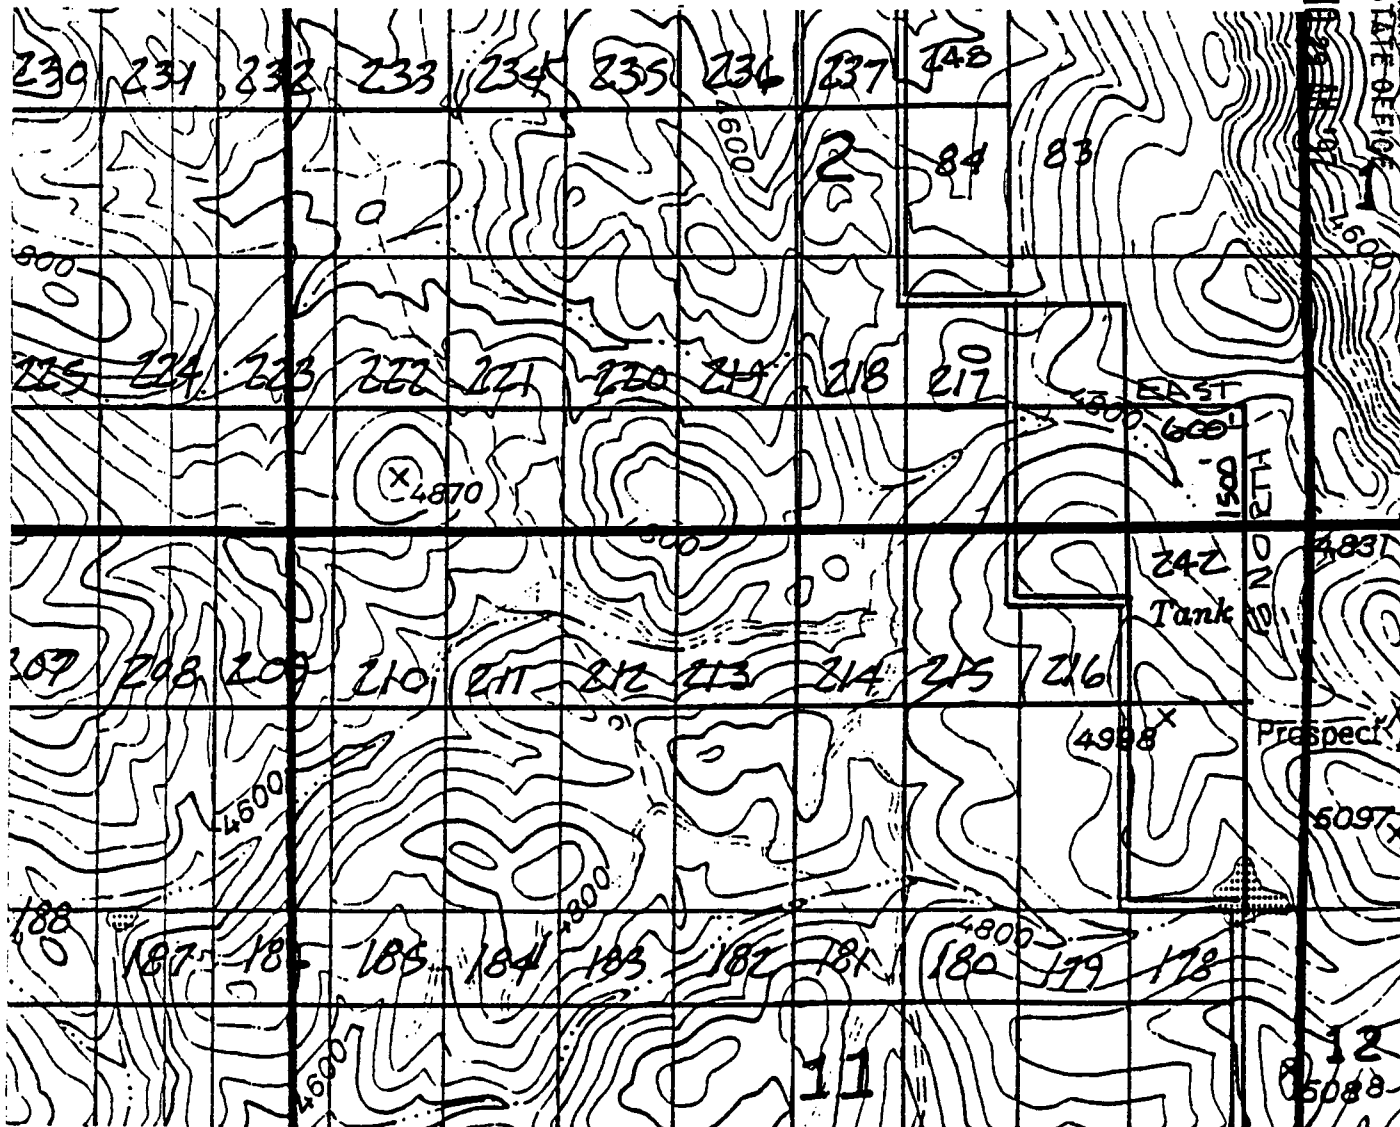 230 231 232 233 234 235 236 237 248
4600
2 84 83
1
4600
800
225 224 223 222 221 220 219 218 217
EAST
4800
600'
1500'
NORTH
4870
4831
242
Tank
207 208 209 210 211 212 213 214 215 216
4998
Prospect
4600
5097
188
4800
4800
187 185 184 183 182 181 180 179 178
4600
11
12
5088
STATE OFFICE